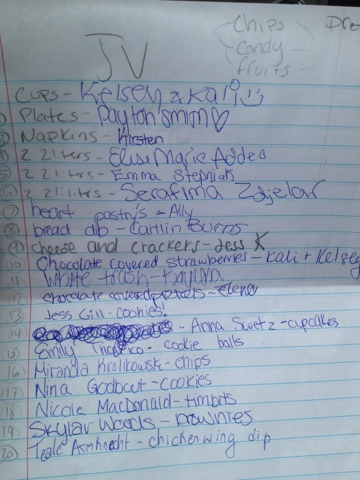 Chips
Dre
JV
Candy -
fruits -
Cups - Kelsey & Kali
Plates - Payton Smith
Napkins - Kirsten
2 2 liters - Elise Marie Addeo
2 2 liters - Emma
2 2 liters - Serafima Zdjelar
7 heart pastry's - Ally
8 bread dip - Caitlin Burns
9 cheese and crackers - Jess X
10 Chocolate covered strawberries - Kali + Kelsey
11 White trash -
12 chocolate covered - Elena
13 Jess Gill - cookies!
14 - Anna Swetz - cupcakes
15 Emily - cookie balls
16 Miranda Krolikowski - chips
17 Nina Godbout - cookies
18 Nicole MacDonald - timbits
19 Skylar Woods - brownies
20 Teale - chicken wing dip